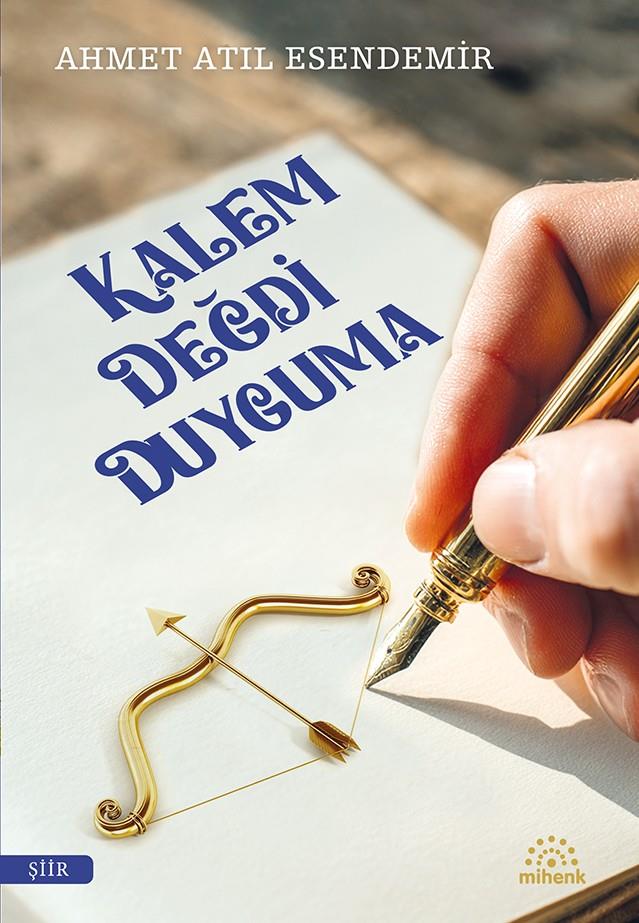 AHMET ATIL ESENDEMİR
KALEM
DEĞDİ
DUYGUMA
ŞİİR
mihenk